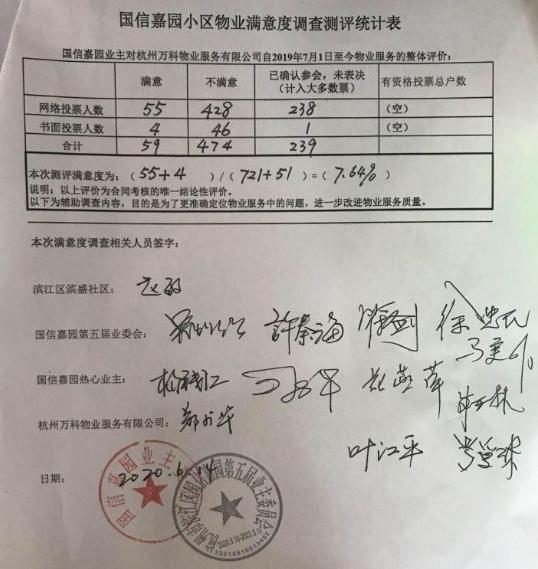 国信嘉园小区物业满意度调查测评统计表
国信嘉园业主对杭州万科物业服务有限公司自2019年7月1日至今物业服务的整体评价：
满意 不满意 已确认参会，未表决（计入大多数票） 有资格投票总户数
网络投票人数 55 428 238 （空）
书面投票人数 4 46 1 （空）
合计 59 474 239
本次测评满意度为：（55+4）/（721+51）=（7.64%）
说明：以上评价为合同考核的唯一结论性评价。
以下为辅助调查内容，目的是为了更准确定位物业服务中的问题，进一步改进物业服务质量。
本次满意度调查相关人员签字：
滨江区滨盛社区：
国信嘉园第五届业委会：
国信嘉园热心业主：
杭州万科物业服务有限公司：
叶江平
日期：2020.6.14
国信嘉园业主
杭州市滨江区国信嘉园第五届业主委员会